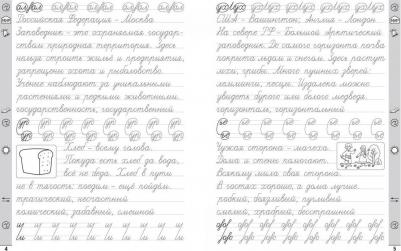 Российская Федерация - Москва
Заповедник - это охраняемая государ-
ством природная территория. Здесь
нельзя строить жильё и предприятия,
запрещены охота и рыболовство.
Учёные наблюдают за уникальными
растениями и редкими животными.
государственность, государственный
Хлеб - всему голова.
Покуда есть хлеб да вода,
всё не беда. Хлеб в пути
не в тягость: поедим - ещё пойдём.
трагический, несчастный
комический, забавный, смешной
4
США - Вашингтон; Англия - Лондон
На севере РФ - Большой Арктический
заповедник. До самого горизонта почва
покрыта льдом и снегом. Здесь растут
мхи, грибы. Много пушных зверей:
лемминги, песцы. Издалека можно
увидеть бурого или белого медведя.
горизонталь, горизонтальный
Чужая сторона - мачеха.
Дома и стены помогают.
Всякому мила своя сторона.
В гостях хорошо, а дома лучше.
робкий, боязливый, пугливый
смелый, храбрый, бесстрашный
5